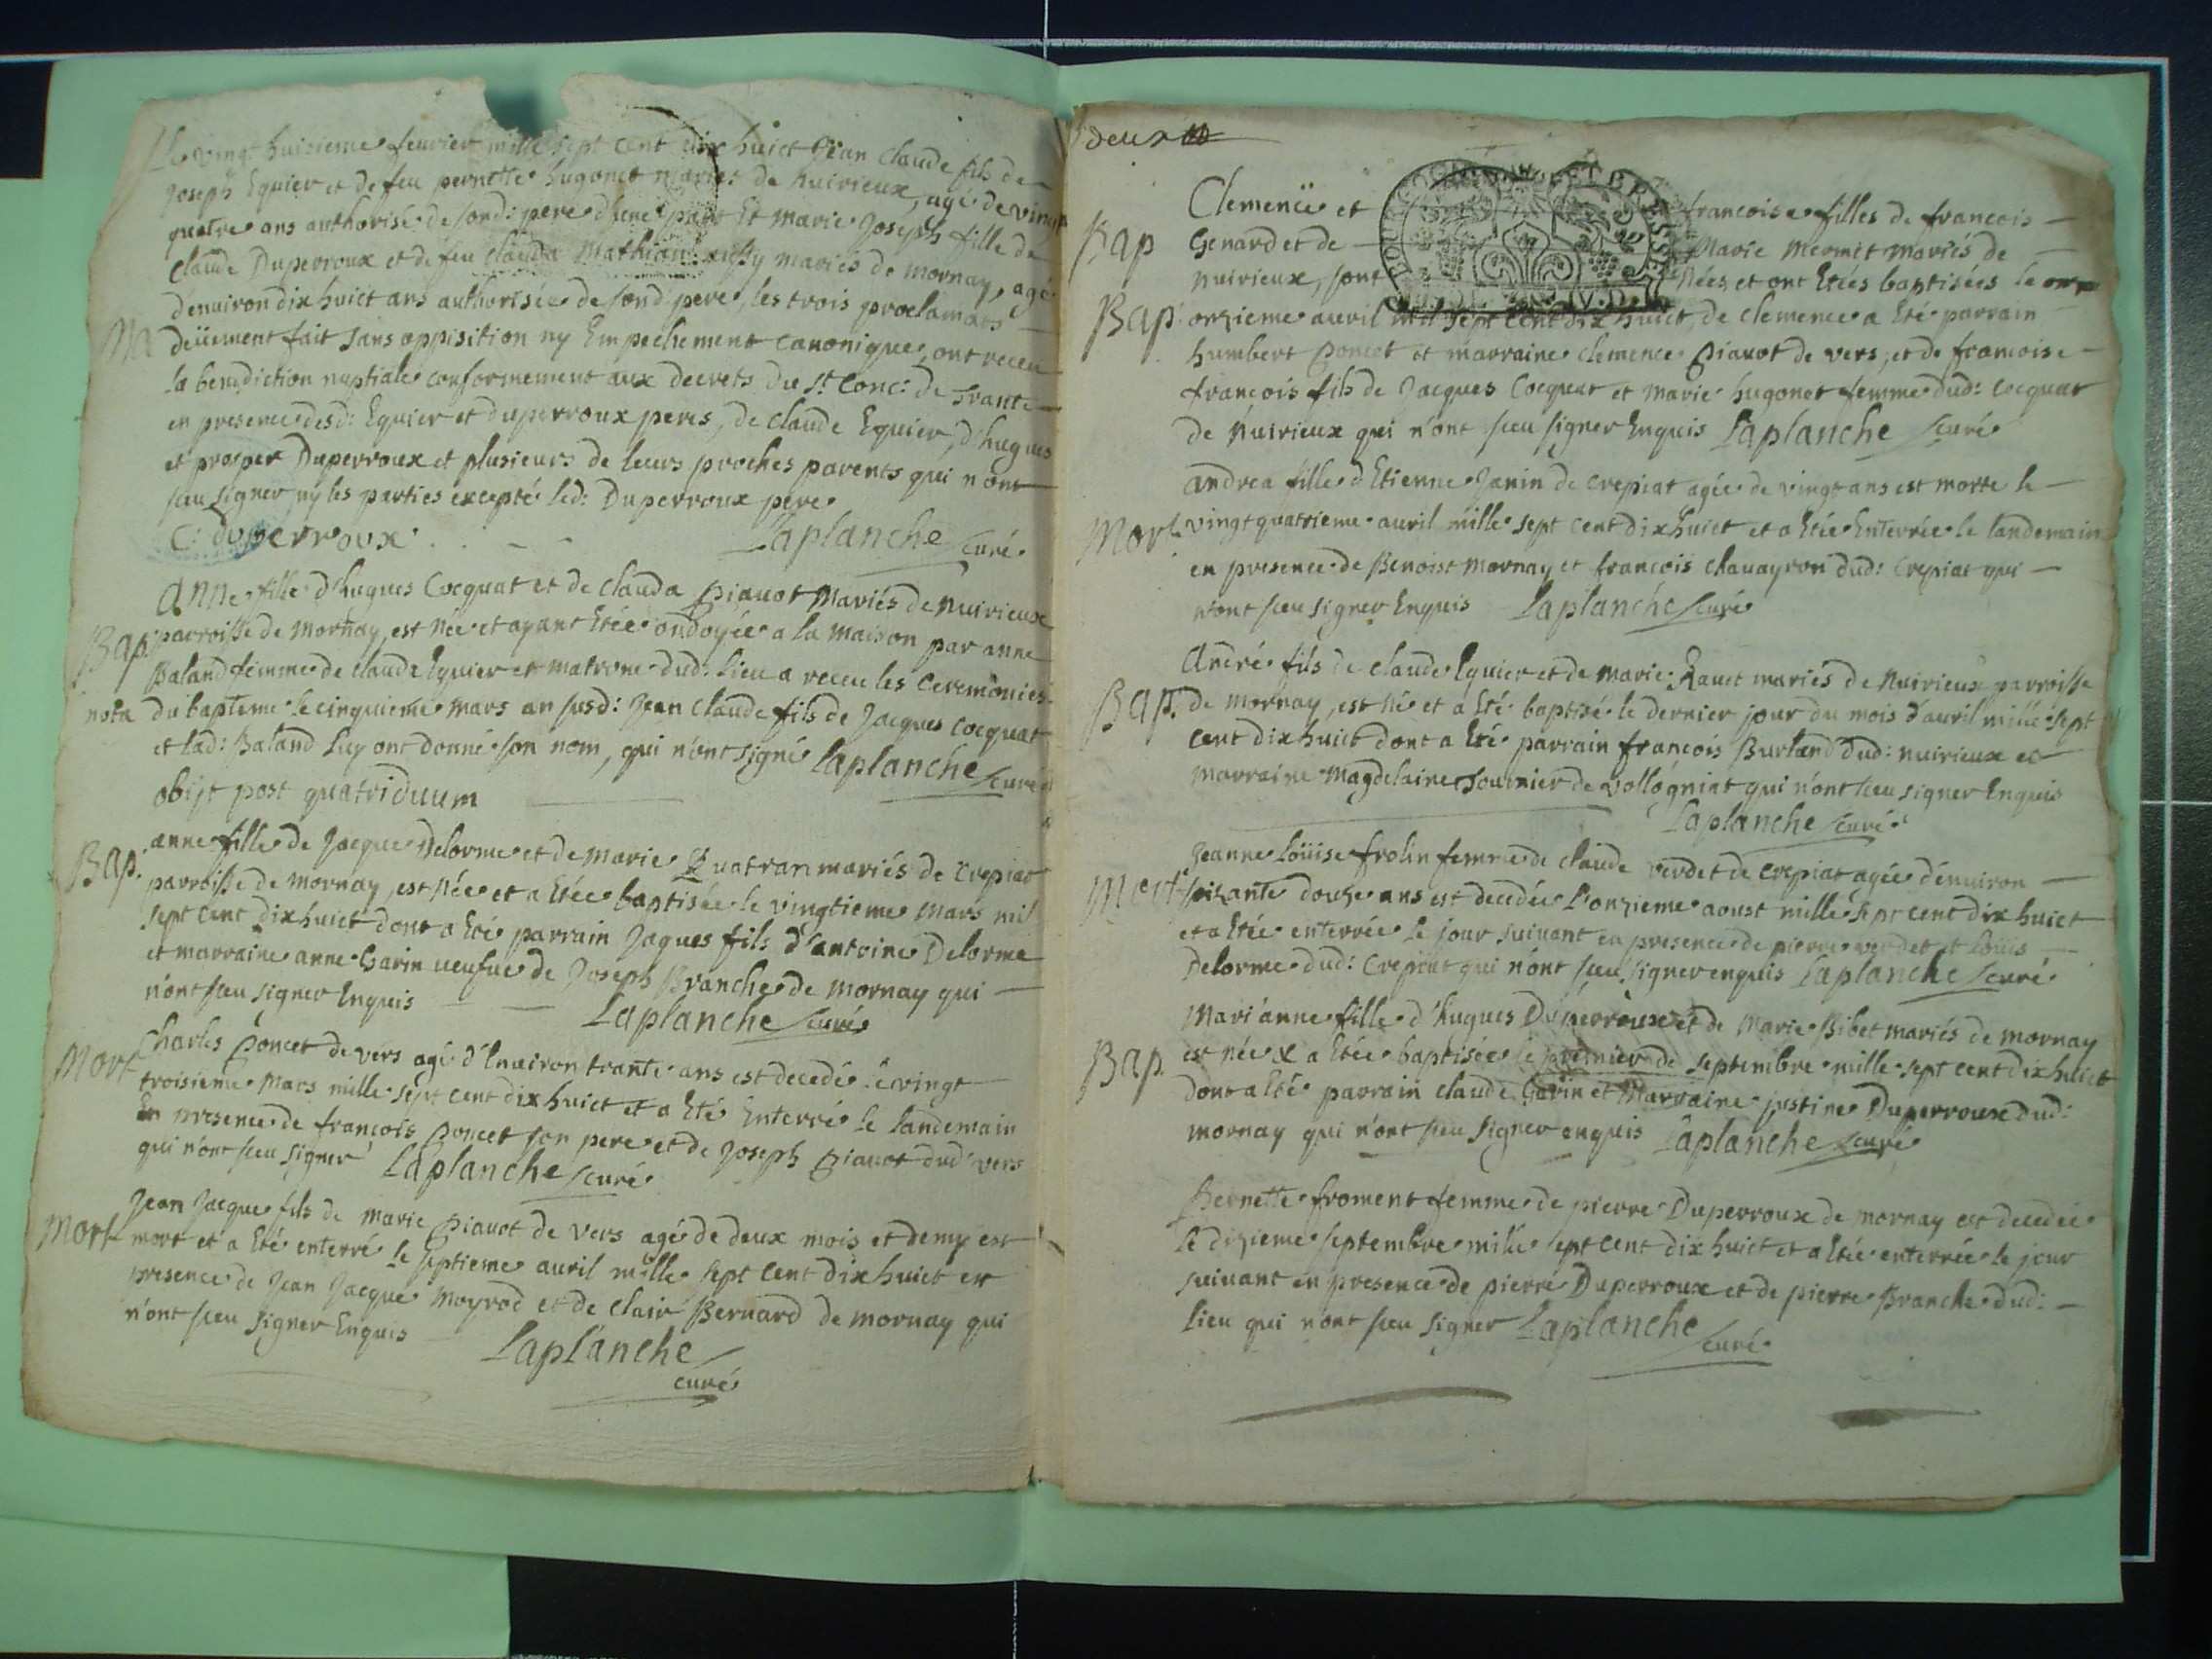 Le vingt huitieme feurier mille sept cent dix huict Jean Claude fils de
Joseph Eguier et de feu pernette hugonet mariés de nuirieux, agé de vingt
quatre ans authorisé de sond: pere d'une part Et Marie Joseph fille de
Claude Duperroux et de feu clauda Mathian aussy mariés de mornay, agée
d'enuiron dix huict ans authorisée de sond pere, les trois proclamaons
Ma
deüement fait sans oppisition ny Empechement canonique, ont receu
la benediction nuptiale conformement aux decrets du St Conc: de Trante
en presence desd: Eguier et duperroux peres, de claude Eguier, d'hugues
et prosper Duperroux et plusieurs de leurs proches parents qui n'ont
sceu signer ny les parties excepté led: Duperroux pere
C: duperroux Laplanche curé
Anne fille d'hugues Cocquat et de clauda piauot Mariés de Nuirieux
Bap: parroisse de Mornay, est Née et ayant Etée ondoyée a la maison par anne
Baland femme de claude Eguier et matrone dud: lieu a receu les ceremonies
nota du bapteme le cinquieme mars an susd: Jean Claude fils de Jacques cocquat
et lad: Baland luy ont donné son nom, qui n'ont signé Laplanche curé
obijt post quatriduum
anne fille de Jacque Delorme et de Marie Quatran mariés de Crepiat
Bap: parroisse de Mornay, est Née et a Etée baptisée le vingtieme Mars mil
sept cent dix huict dont a Eté parrain Jaques fils d'antoine Delorme
et marraine anne Garin ueufue de Joseph Branche de Mornay qui
n'ont sceu signer Enquis Laplanche curé
Charles Poncet de vers agé d'Enuiron trante ans est decedé le vingt
Mort troisieme Mars mille sept cent dix huict et a Eté Enterré le landemain
En presence de francois Poncet son pere et de Joseph piauot dud: vers
qui n'ont sceu signer Laplanche curé
Jean Jacque fils de Marie Piauot de Vers agé de deux mois et demy est
Mort mort et a Eté enterré le septieme auril mille sept cent dix huict en
presence de Jean Jacque Moyrod et de Clair Bernard de mornay qui
n'ont sceu signer Enquis
Laplanche
curé
deux
Clemence et francoise filles de francois
Bap Genard et de Marie Mermet Mariés de
nuirieux, sont Nées et ont Etées baptisées le
Bap: onzieme auril mil sept cent dix huict, de clemence a Eté parrain
humbert Poncet et marraine clemence Piauot de vers, et de francoise
françois fils de Jacques Cocquat et Marie hugonet femme dud: Cocquat
de Nuirieux qui n'ont sceu signer Enquis Laplanche curé
andrea fille d'Etienne Janin de crepiat agée de vingt ans est morte le
Mort vingt quatrieme auril mille sept cent dix huict et a Etée Enterrée le landemain
en presence de Benoist Mornay et francois chauayron dud: Crepiat qui
n'ont sceu signer Enquis Laplanche curé
André fils de claude Eguier et de marie Rauet mariés de Nuirieux parroisse
Bap. de mornay, est Né et a Eté baptisé le dernier jour du mois d'auril mille sept
cent dix huict dont a Eté parrain francois Burtand dud: nuirieux et
marraine Magdelaine Tournier de vollogniat qui n'ont sceu signer Enquis
Laplanche curé
Jeanne Loüise frolin femme de claude verdet de crepiat agée d'enuiron
Mort soixante douze ans est decedée l'onzieme aoust mille sept cent dix huict
et a Etée enterrée le jour suiuant en presence de pierre verdet et Loüis
Delorme dud: Crepiat qui n'ont sceu signer enquis Laplanche curé
Mari'anne fille d'hugues Duperroux et de Marie Bibet mariés de mornay
Bap. est née & a Etée baptisée le premier de septembre mille sept cent dix huict
dont a Eté parrain claude Garin et Marraine justine Duperroux dud:
mornay qui n'ont sceu signer enquis Laplanche curé
Pernette froment femme de pierre Duperroux de mornay est decedée
le dizieme septembre mille sept cent dix huict et a Etée enterrée le jour
suiuant en presence de pierre Duperroux et de pierre Branche dud:
lieu qui n'ont sceu signer Laplanche
curé